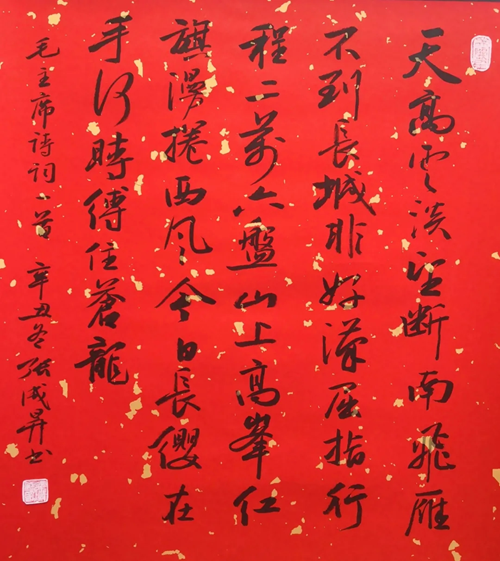 天高雲淡望断南飛雁
不到長城非好漢屈指行
程二萬六盤山上高峯紅
旗漫捲西風今日長纓在
手何時縛住蒼龍
毛主席詩詞一首 辛丑冬張成昇書